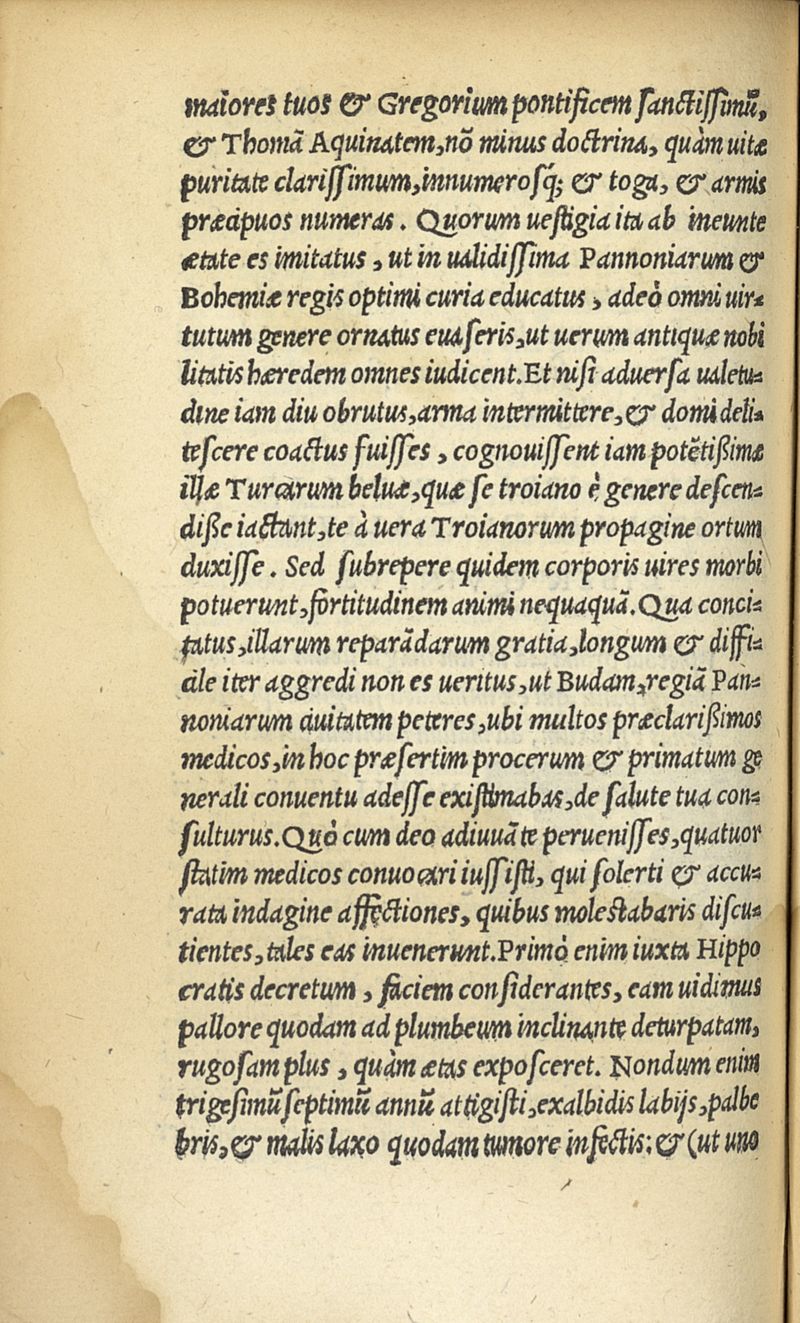 maiores tuos & Gregorium pontificem sanctissimū,
& Thomā Aquinatem, nō minus doctrina, quàm uitæ
puritate clarissimum, innumerosq́; & toga, & armis
præcipuos numeras. Quorum uestigia ita ab ineunte
ætate es imitatus, ut in ualidissima Pannoniarum &
Bohemiæ regis optimi curia educatus, adeò omni uir-
tutum genere ornatus euaseris, ut uerum antiquæ nobi
litatis hæredem omnes iudicent. Et nisi aduersa ualetu-
dine iam diu obrutus, arma intermittere, & domi deli-
tescere coactus fuisses, cognouissent iam potētißimæ
illæ Turcarum beluæ, quæ se troiano è genere descen-
diße iactant, te à uera Troianorum propagine ortum
duxisse. Sed subrepere quidem corporis uires morbi
potuerunt, fortitudinem animi nequaquā. Qua conci-
tatus, illarum reparādarum gratia, longum & diffi-
cile iter aggredi non es ueritus, ut Budam, regiā Pan-
noniarum ciuitatem peteres, ubi multos præclarißimos
medicos, in hoc præsertim procerum & primatum ge
nerali conuentu adesse existimabas, de salute tua con-
sulturus. Quò cum deo adiuuāte peruenisses, quatuor
statim medicos conuocari iussisti, qui solerti & accu-
rata indagine affectiones, quibus molestabaris discu-
tientes, tales eas inuenerunt. Primò enim iuxta Hippo
cratis decretum, faciem considerantes, eam uidimus
pallore quodam ad plumbeum inclinante deturpatam,
rugosam plus, quàm ætas exposceret. Nondum enim
trigesimū septimū annū attigisti, exalbidis labijs, palbe
bris, & malis laxo quodam tumore infectis: & (ut uno